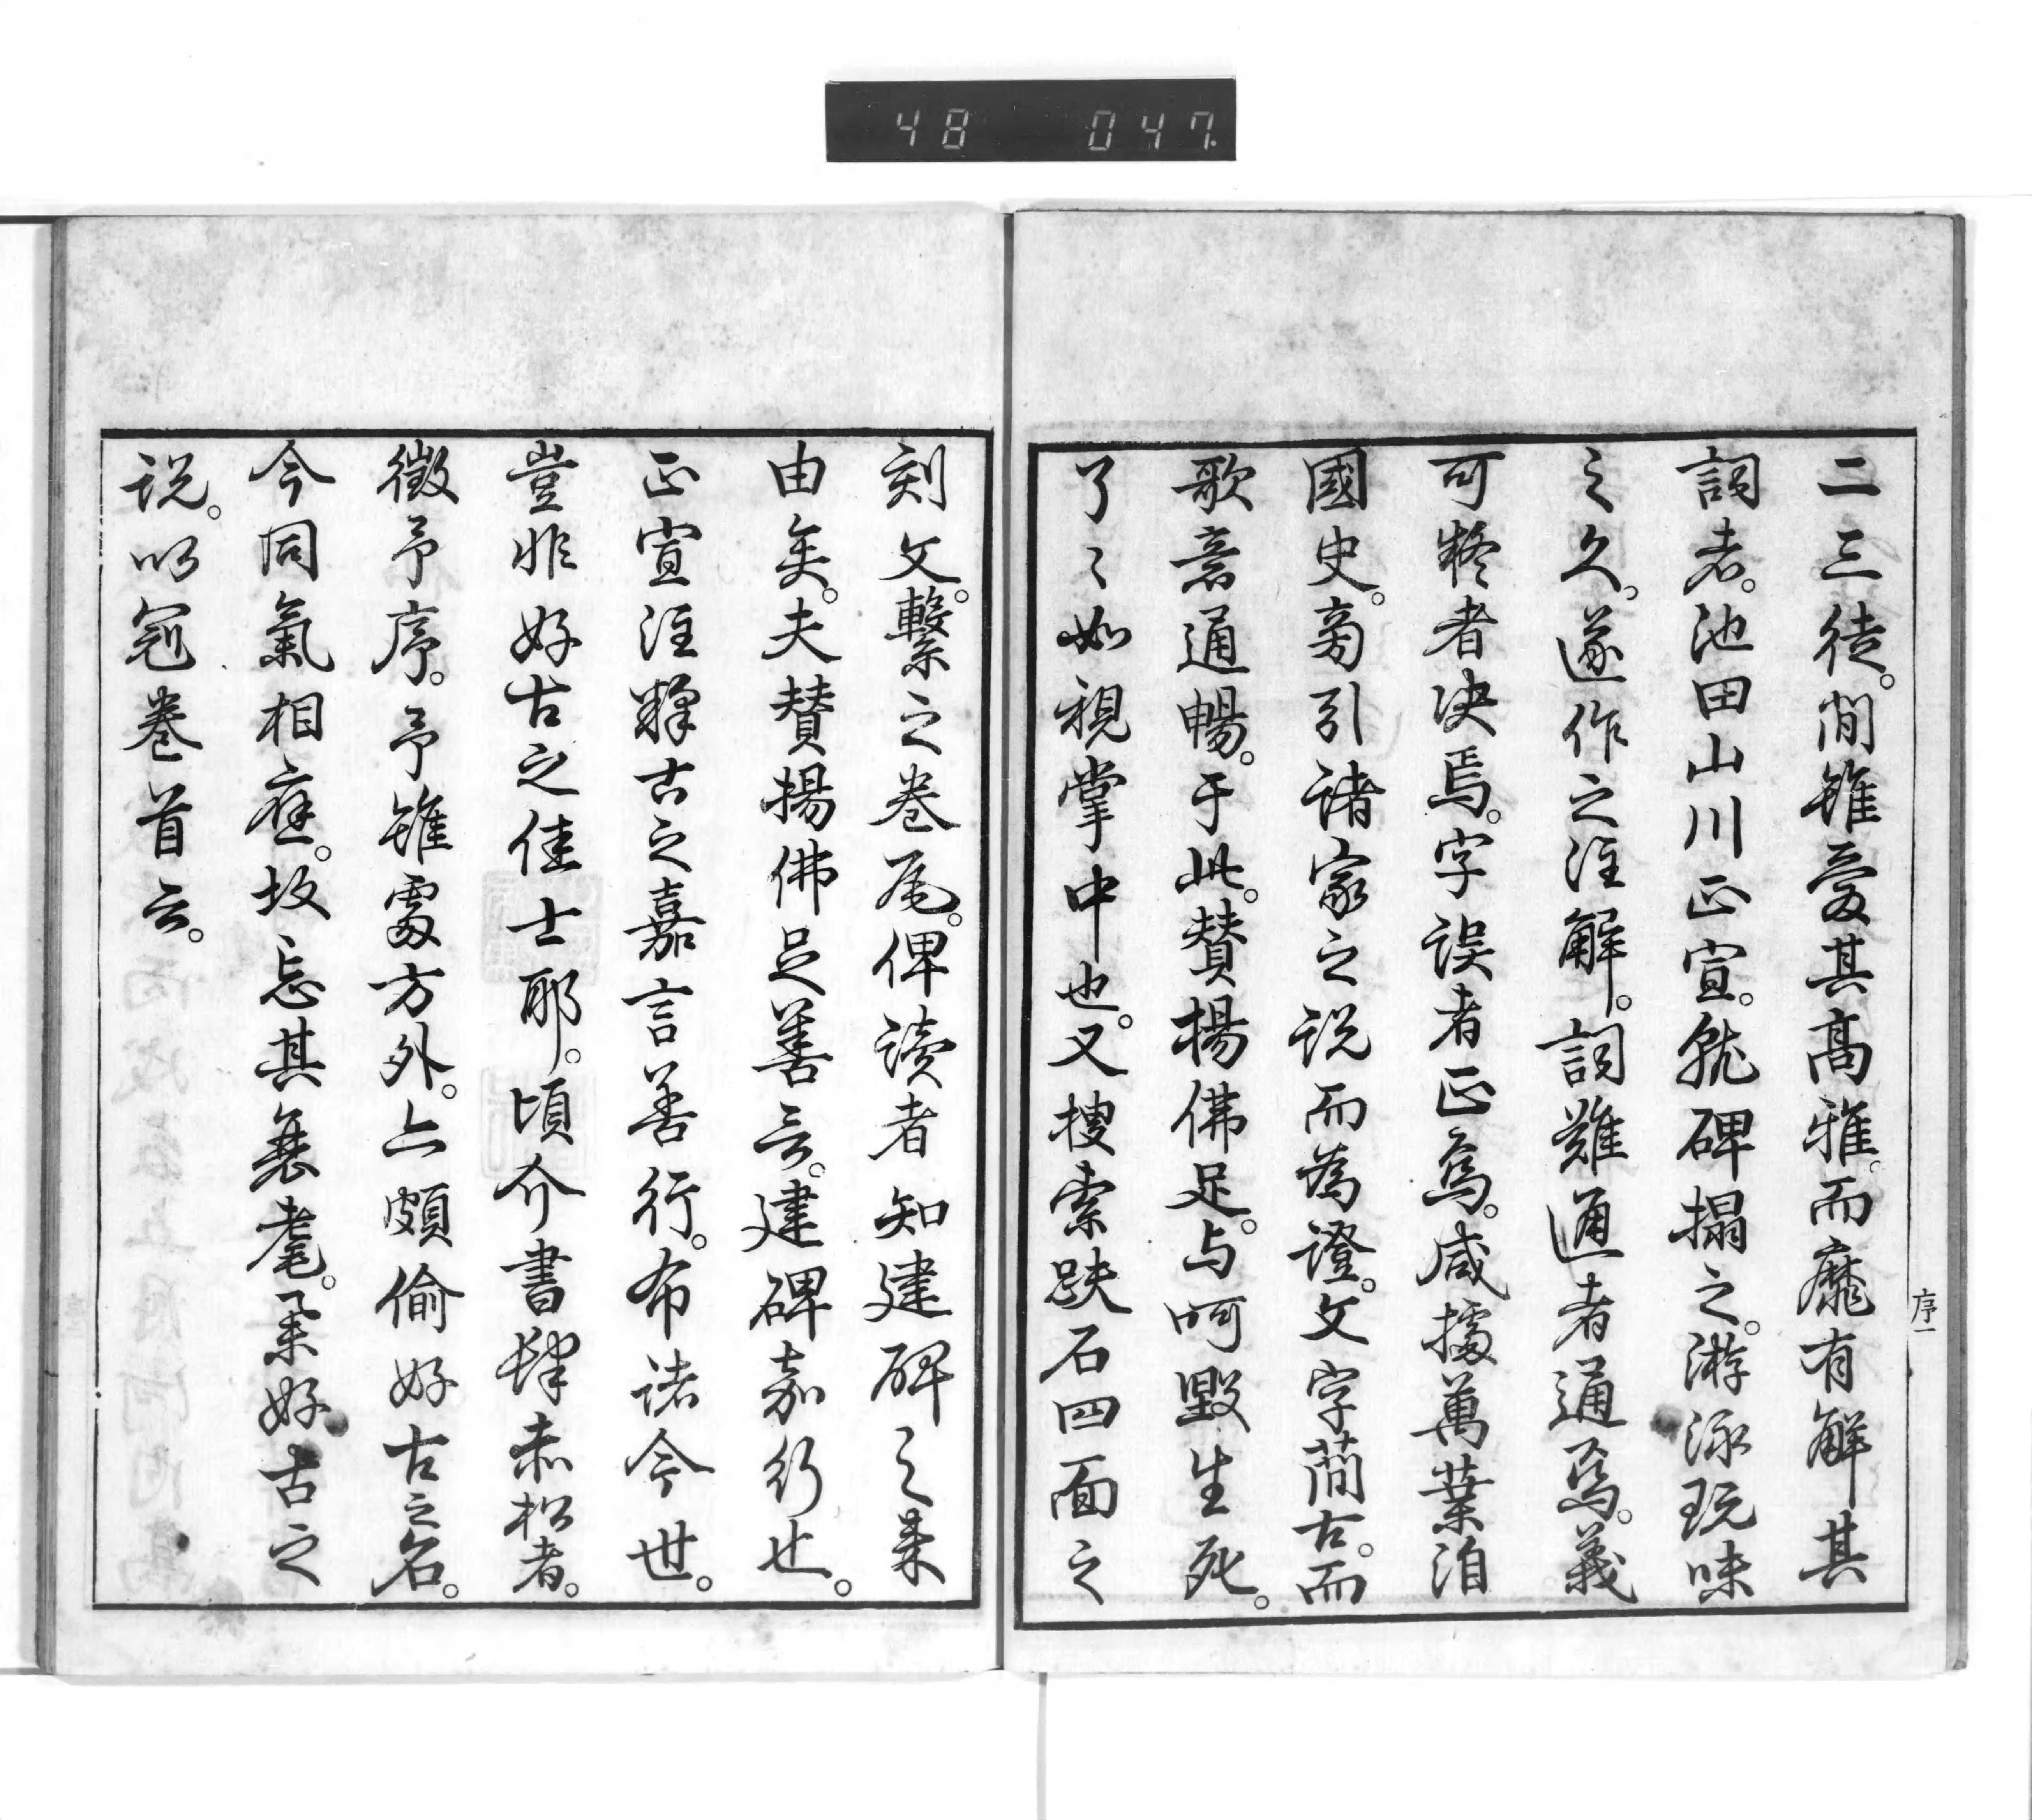 48 047.
二三徒。間雖愛其高雅。而靡有解其
詞者。池田山川正宣。就碑搨之。游泳玩味
之久。遂作之注解。詞難通者通焉。義
可疑者決焉。字誤者正焉。咸據萬葉洎
國史。旁引諸家之説而為證。文字簡古。而
歌意通暢。于此。賛揚佛足。与呵毀生死。
了〻如視掌中也。又搜索趺石四面之
序一
刻文。繫之卷尾。俾讀者知建碑之來
由矣。夫賛揚佛足善言。建碑嘉行也。
正宣注釋古之嘉言善行。布諸今世。
豈非好古之佳士耶。頃介書肆赤松者。
徵予序。予雖處方外。亠頗偷好古之名。
今同氣相應。故忘其衰耄。柔好古之
説。以冠卷首云。